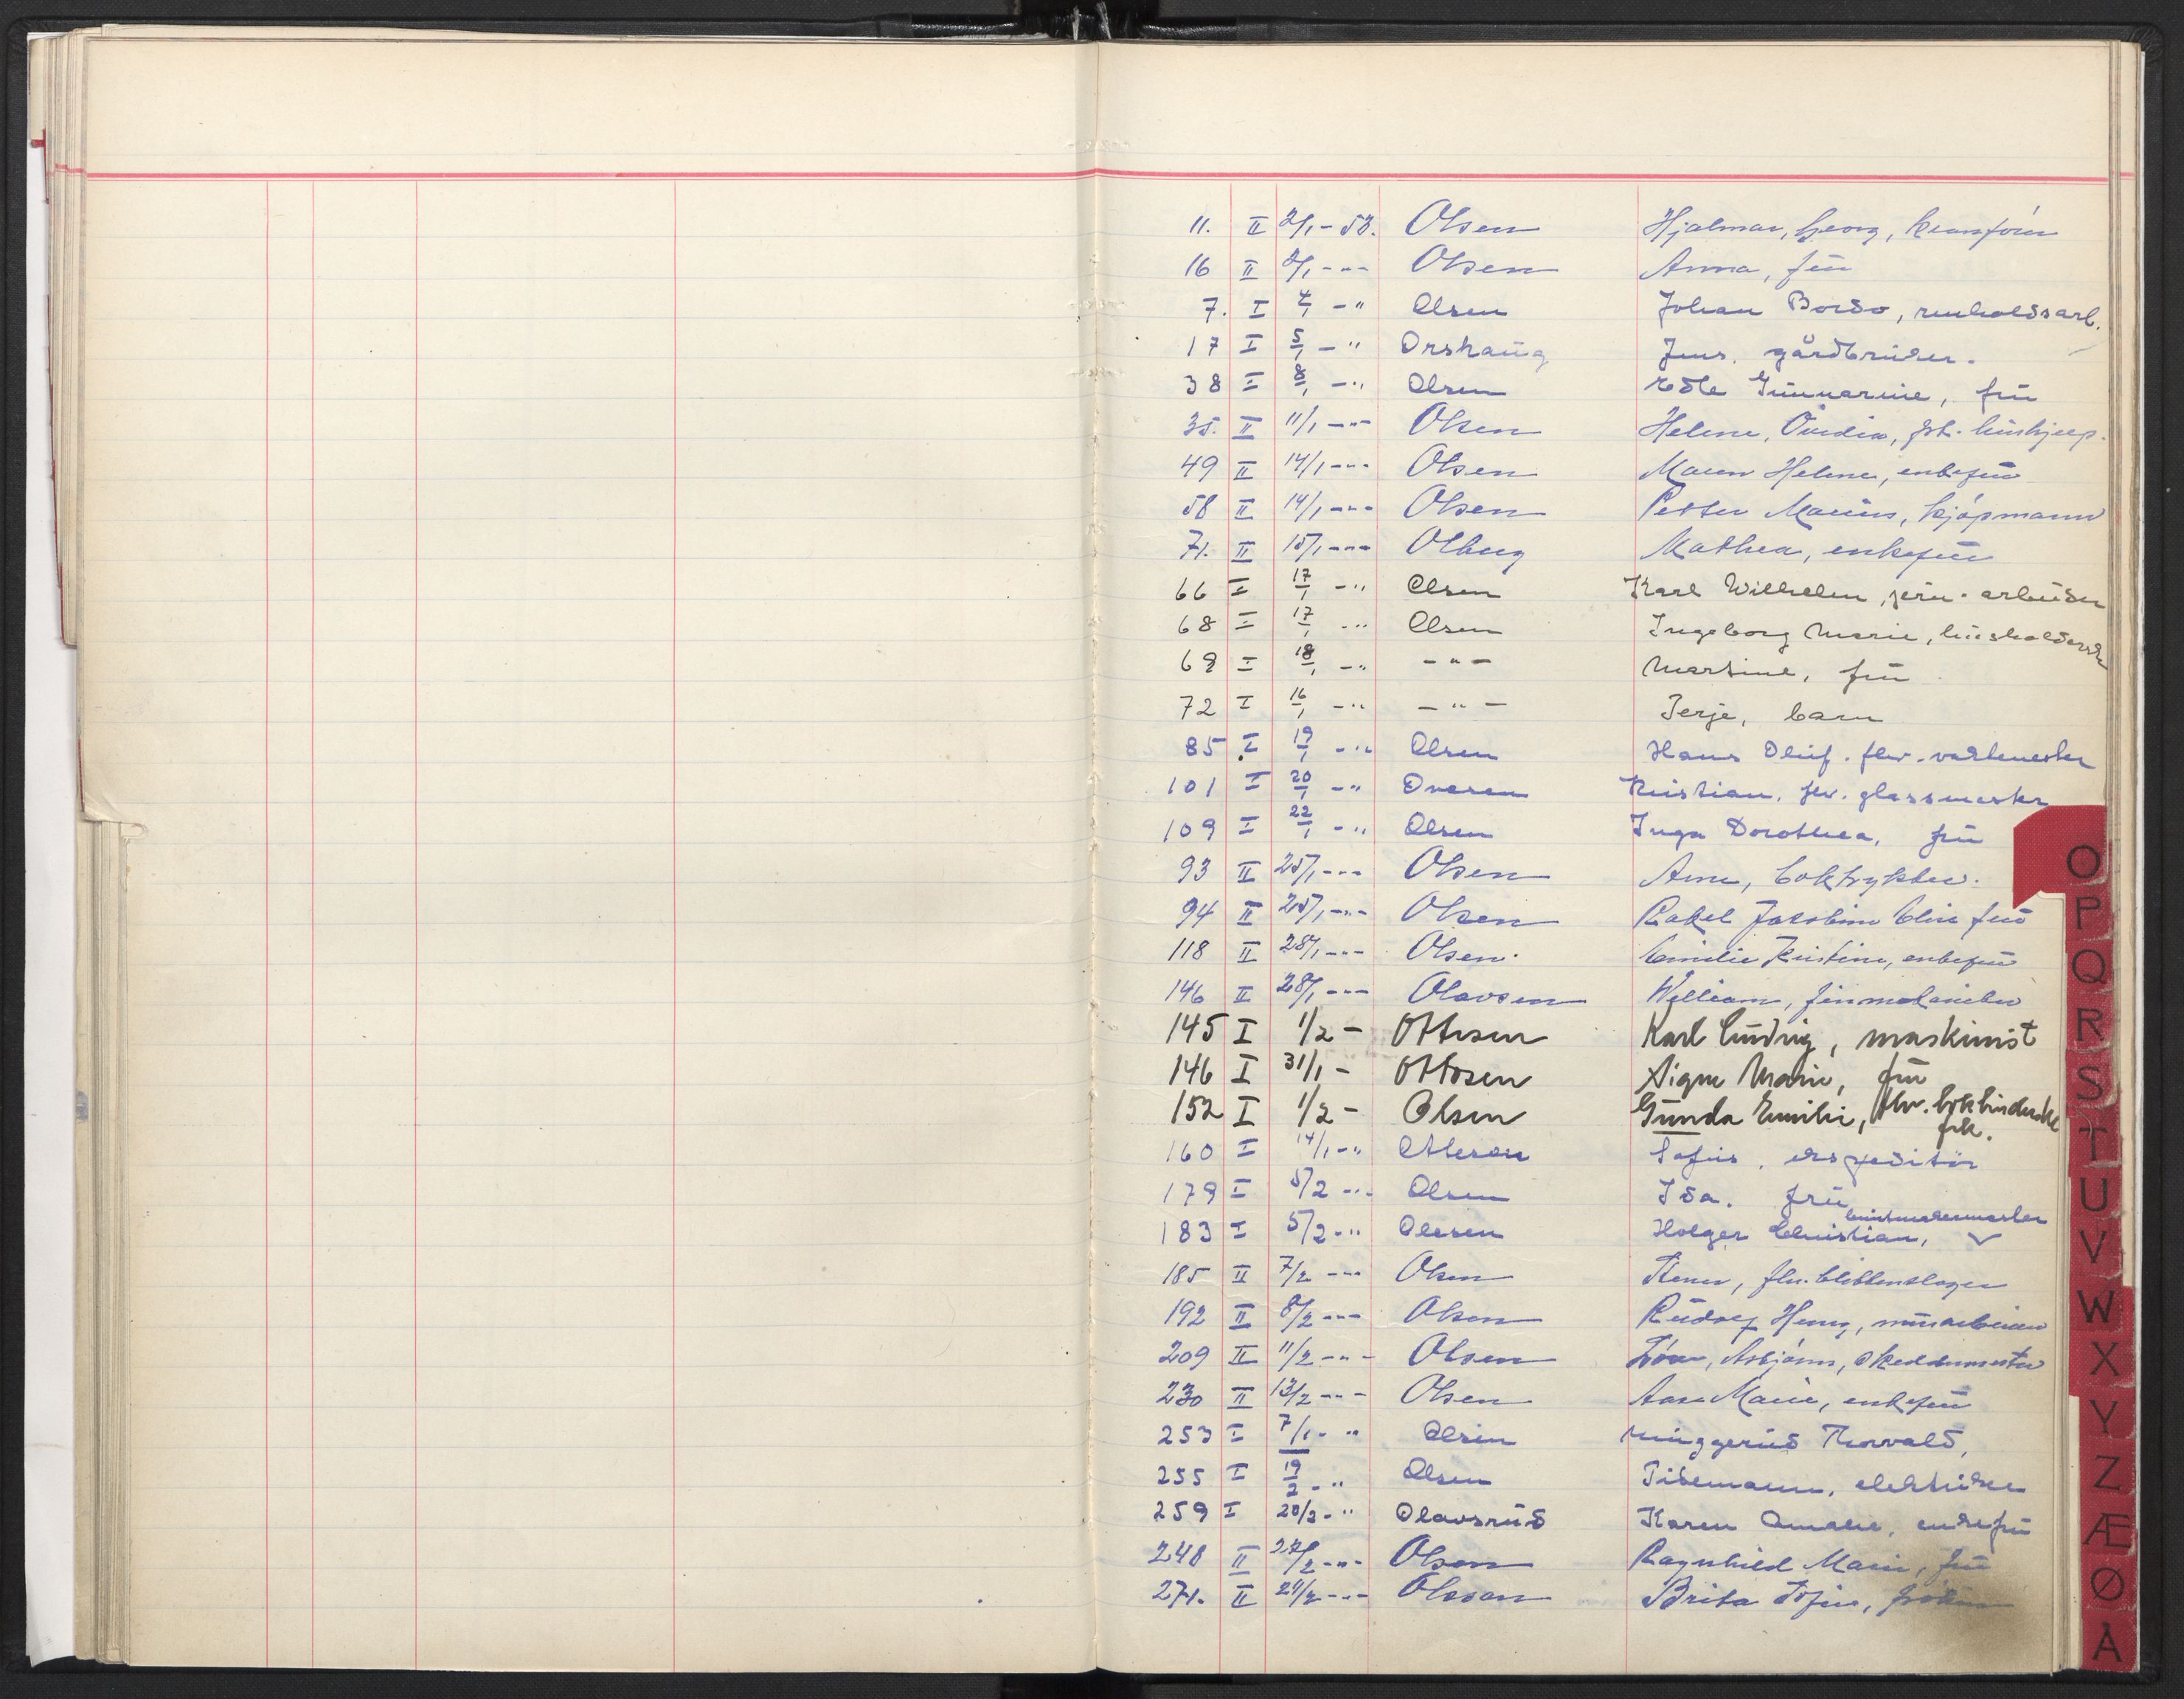 11. II 2/1-53. Olsen Hjalmar, Georg, kranfører
16 II 2/1 -"- Olsen Anna, frū
7. I 4/1 -" Olsen Johan Bordo, renholdsarb.
17 I 5/1 -" Orshaūg Jens. gårdbrūker.
38 I 8/1 -" Olsen Edle Gūnnarine, frū
35. II 11/1 -"- Olsen Helene, Ovidia, frk. hūshjelp.
49 II 14/1 -"- Olsen Maren Helene, enkefrū
58 II 14/1 -"- Olsen Petter Mariūs, kjøpmann
71. II 15/1 -"- Olberg Mathea, enkefrū
66 I 17/1 -" Olsen Karl Wilhelm, jern-arbeider
68 I 17/1 -" Olsen Ingeborg Marie, hūsholderske
69 I 18/1 -" -"- Martine, frū
72 I 16/1 -" -"- Terje, barn
85 I 19/1 -" Olsen Hans Olūf. fhv. vaktmester
101 I 20/1 -" Ovesen Kristian. fhv. glassmester
109 I 22/1 -" Olsen Inga Dorothea, frū
93 II 25/1 -"- Olsen Arne, boktrykker.
94 II 25/1 -"- Olsen Rakel Jakobine Elise frū
118 II 28/1 -"- Olsen. Emilie Kristine, enkefrū
146 II 28/1 -"- Olavsen William, finmekaniker
145 I 1/2 - Ottesen Karl Lūdvig, maskinist
146 I 31/1 - Ottosen Signe Marie, frū
152 I 1/2 - Olsen Gūnda Emilie, fhv. bokbinderske frk.
160 I 14/1 -" Ottesen Sofūs. ekspeditør
179 I 5/2 -" Olsen Ida. frū
183 I 5/2 -" Olesen Holger Christian, būntmakermester
185 II 7/2 -"- Olsen Stener, fhv. blikkenslager
192 II 8/2 -"- Olsen Rūdolf Henry, mūrarbeider
209 II 11/2 -"- Olsen Asbjørn, skreddermester
230 II 13/2 -"- Olsen Aase Marie, enkefrū
253 I 7/1 -" Olsen Mūggerūd Thorvald,
255 I 19/2 -" Olsen Tidemann, elektriker
259 I 20/2 -" Olavsrūd Karen Amalie, enkefrū
248 II 22/2 -"- Olsen Ragnhild Marie, frū
271. II 24/2 -"- Olsson Brita Sofie, frøken
O
P
Q
R
S
T
U
V
W
X
Y
Z
Æ
Ø
A